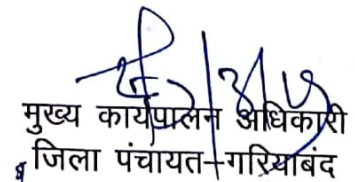 मुख्य कार्यपालन अधिकारी
जिला पंचायत-गरियाबंद